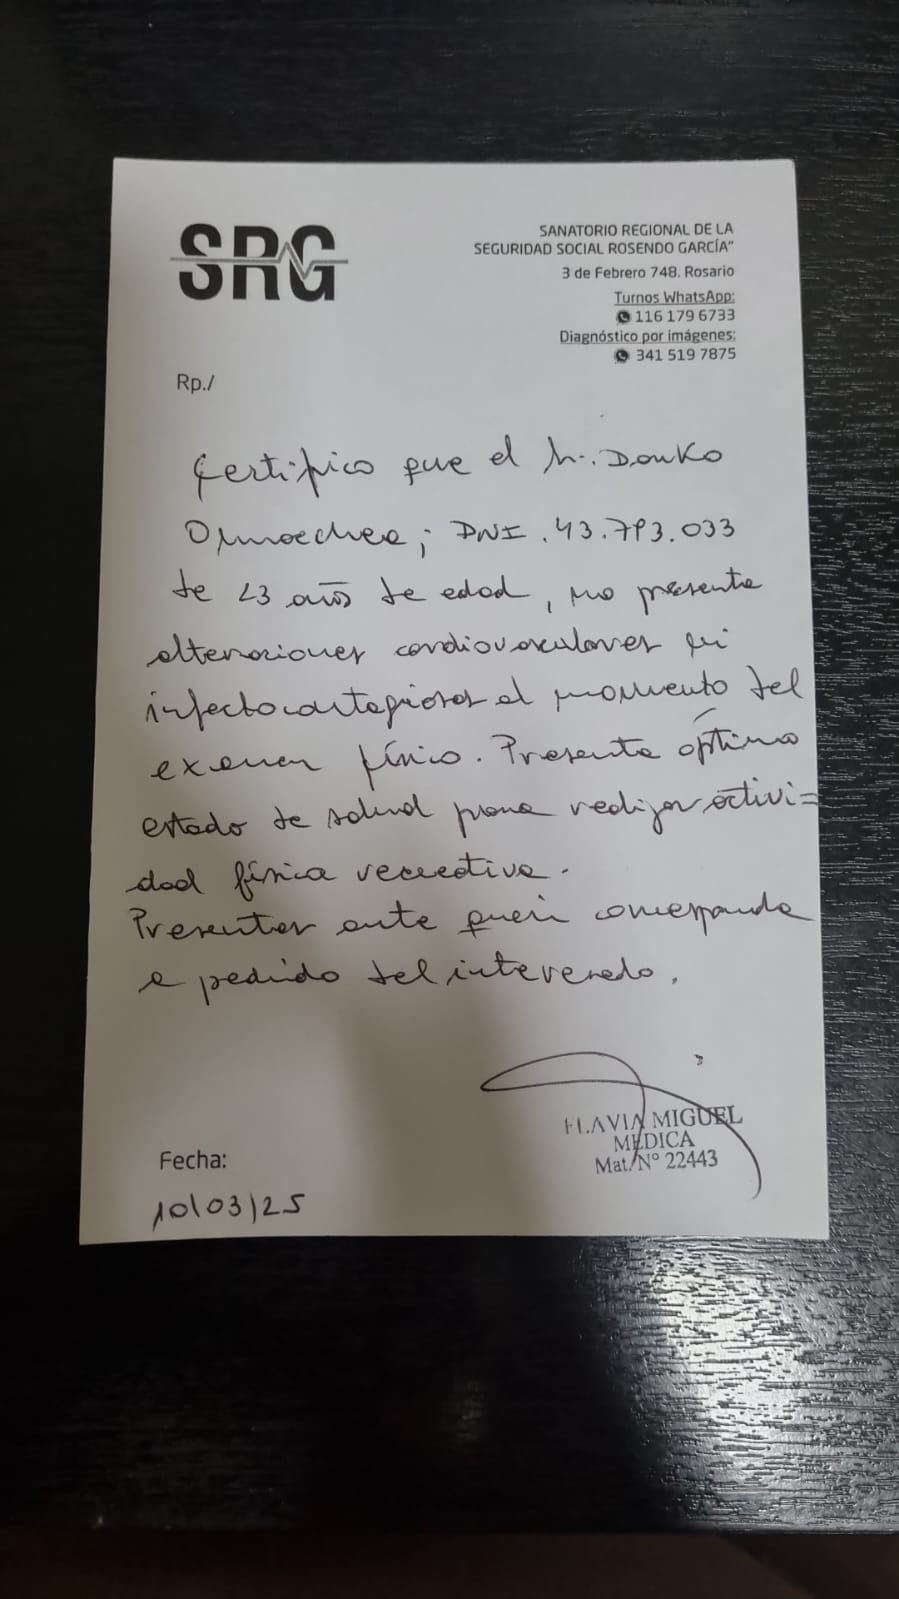 SRG
SANATORIO REGIONAL DE LA
SEGURIDAD SOCIAL ROSENDO GARCÍA"
3 de Febrero 748. Rosario
Turnos WhatsApp:
116 179 6733
Diagnóstico por imágenes:
341 519 7875
Rp./
Certifico que el Sr. Danko
Ormaechea; DNI. 43.793.033
de 23 años de edad, no presenta
alteraciones cardiovasculares ni
infectocontagiosas al momento del
examen físico. Presenta óptimo
estado de salud para realizar activi=
dad física recreativa.
Presentar ante quien corresponda
a pedido del interesado.
FLAVIA MIGUEL
MÉDICA
Mat. Nº 22443
Fecha:
10/03/25